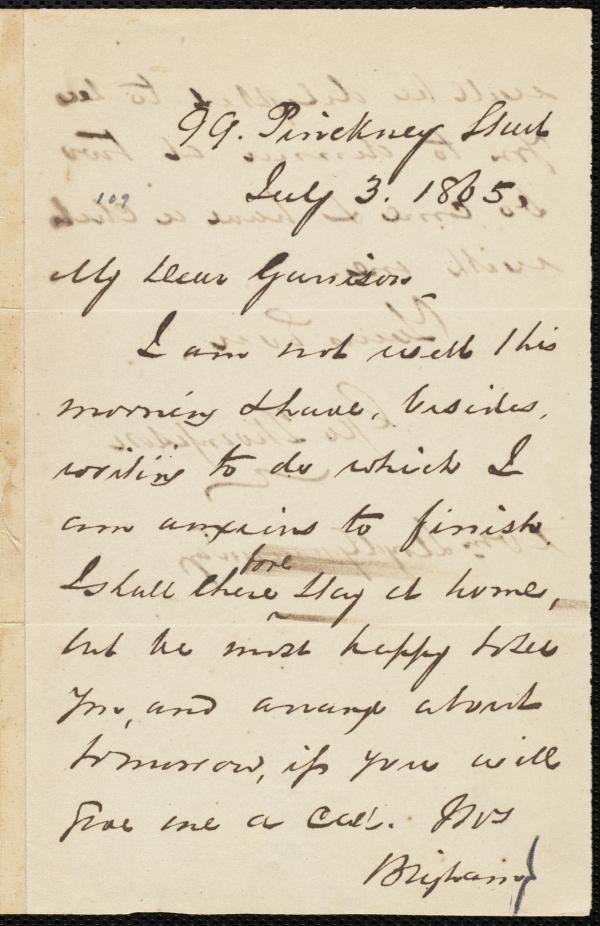 99. Pinckney Street
July 3. 1865.
109
My Dear Garrison,
I am not well this
morning & have, besides,
writing to do which I
am anxious to finish.
I shall there fore stay at home,
but be most happy to see
you, and arrange about
tomorrow, if you will
give me a call. Mrs
Brigham